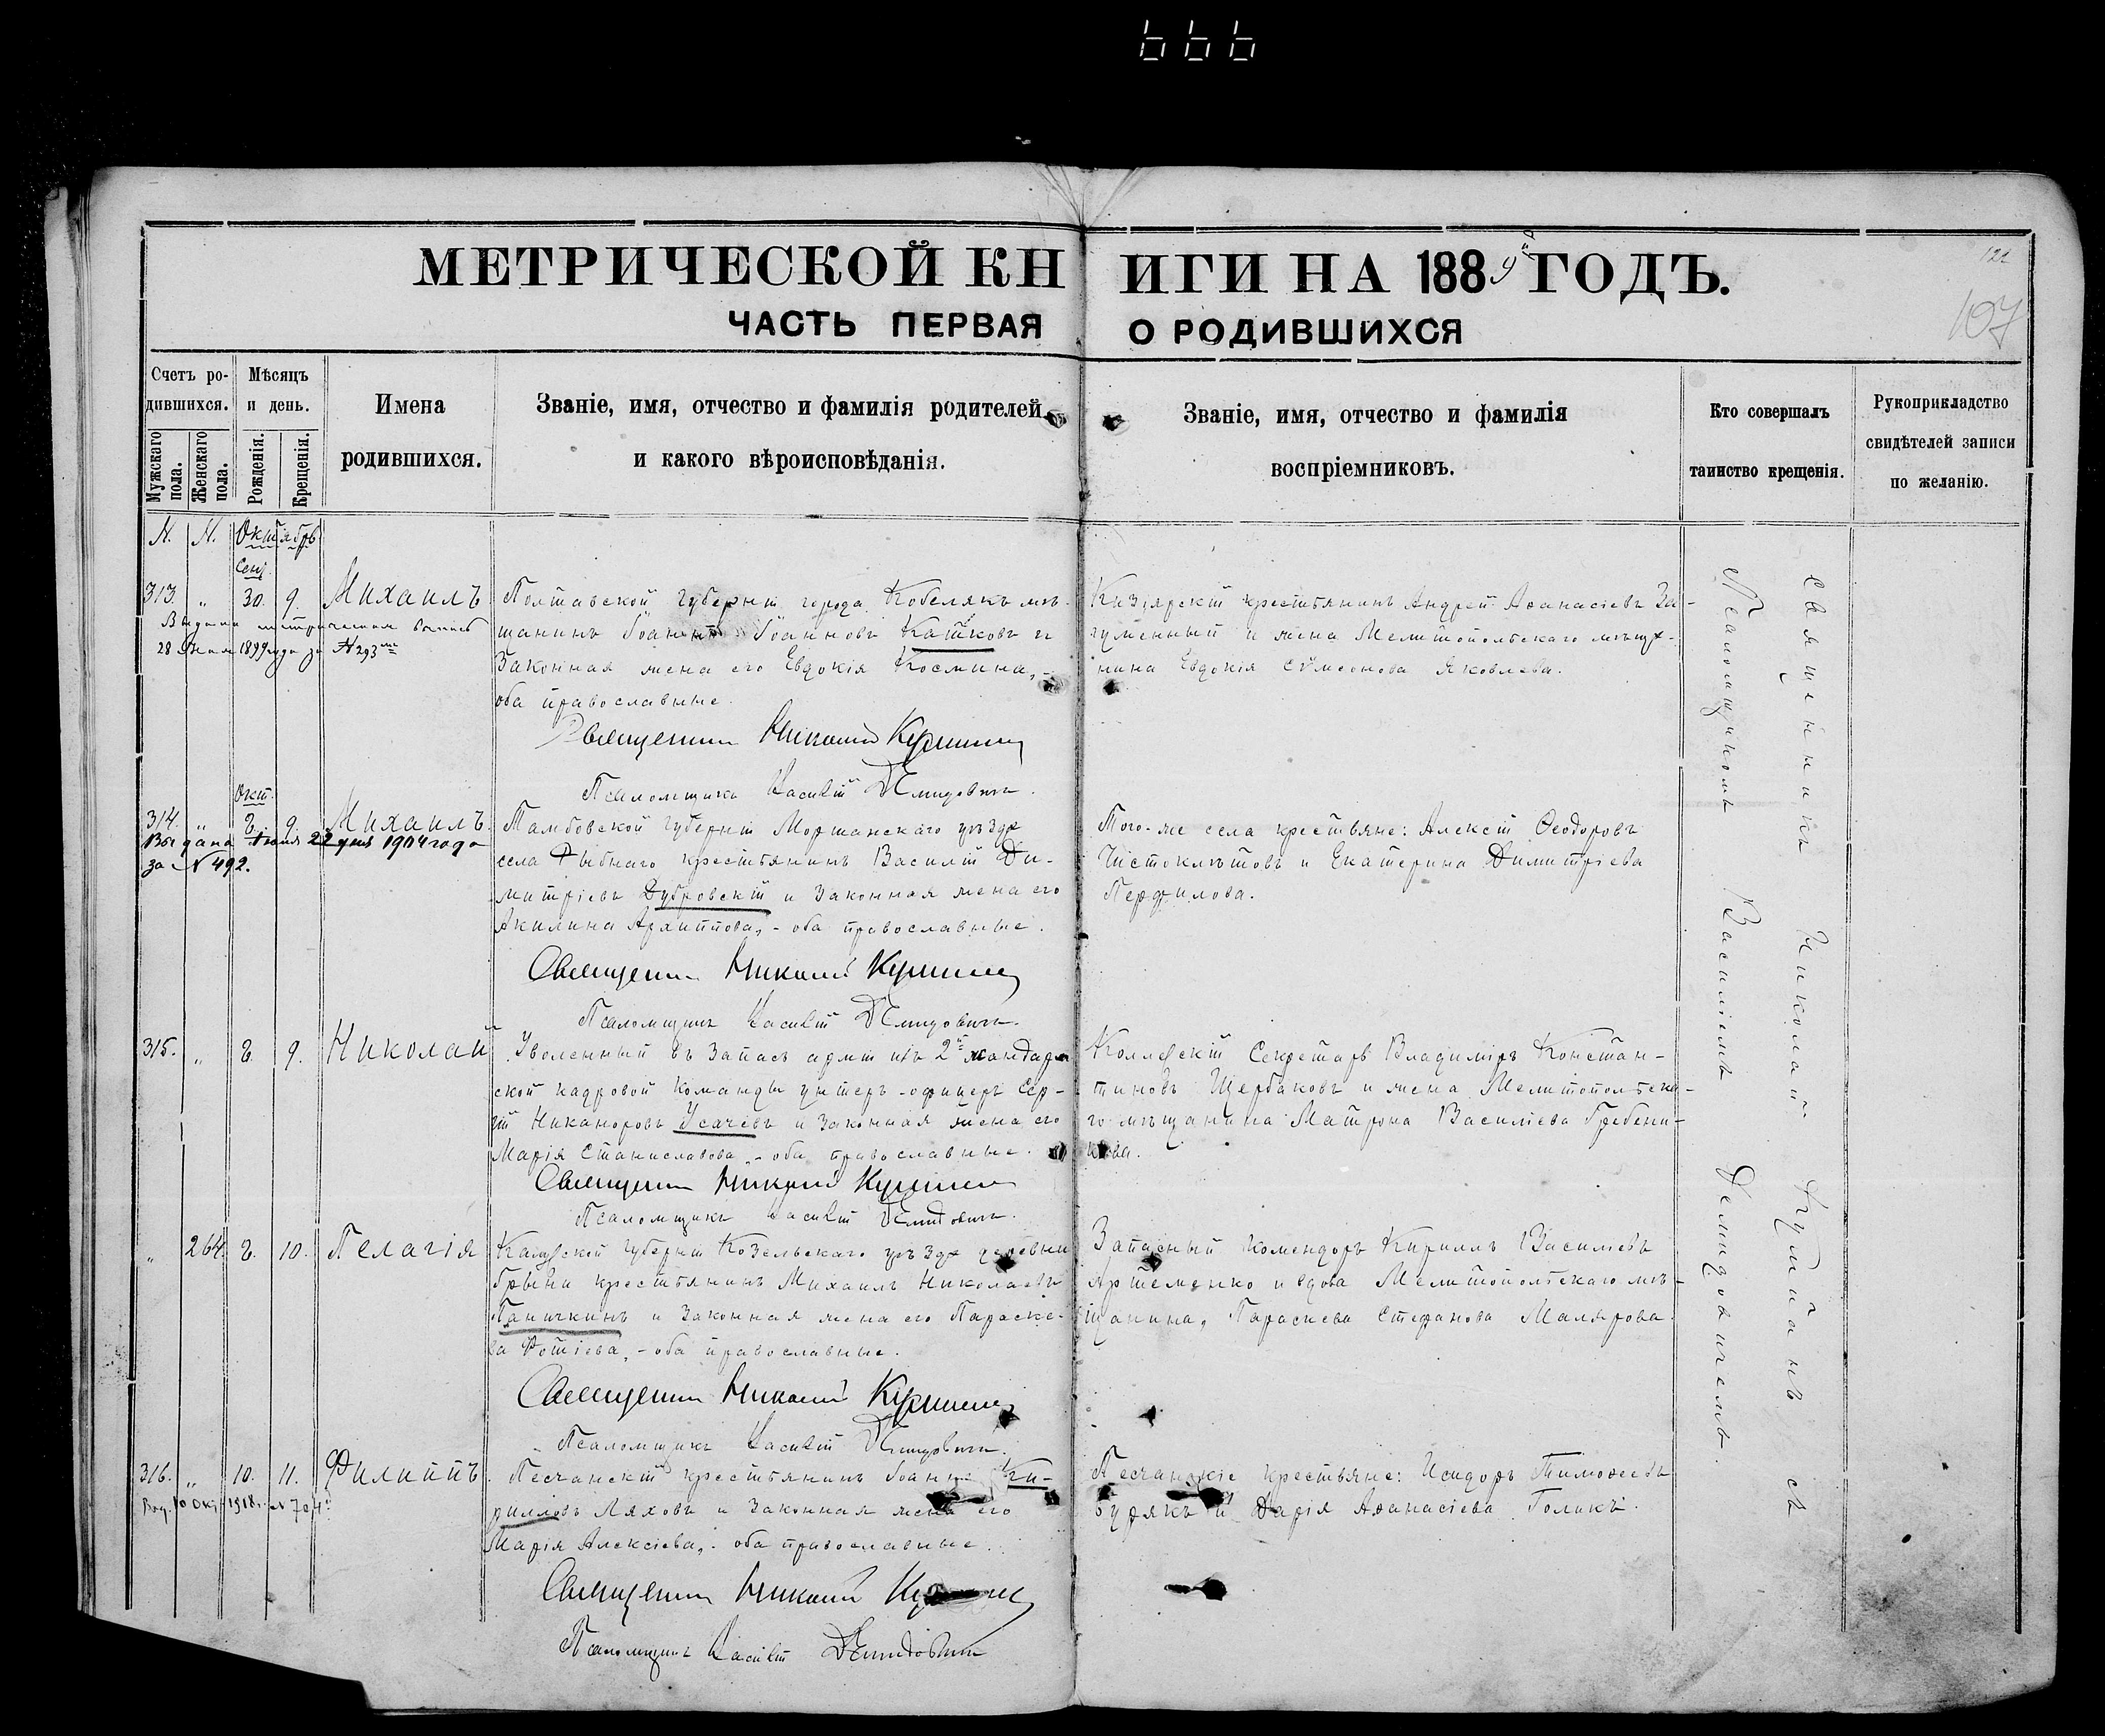 666
МЕТРИЧЕСКОЙ КНИГИ НА 1889й ГОДЪ.
122
107
ЧАСТЬ ПЕРВАЯ О РОДИВШИХСЯ
Счетъ родившихся.
Мужскаго пола.
Женскаго пола.
Мѣсяцъ и день.
Рожденія.
Крещенія.
Имена
родившихся.
Званіе, имя, отчество и фамилія родителей
и какого вѣроисповѣданія.
Званіе, имя, отчество и фамилія
воспріемниковъ.
Кто совершалъ
таинство крещенія.
Рукоприкладство
свидѣтелей записи
по желанію.
Октябрь
Сент.
313 „ 30. 9. Михаилъ
28 1899 года за №293
Полтавской губерніи города Кобелякъ мѣ-
щанинъ Іоаннъ Іоанновъ Катковъ и
законная жена его Евдокія Космина, -
оба православные.
Священникъ Николай
Псаломщикъ Василій Демидовичъ.
Андрей Аѳанасіевъ За-
гуменный и жена Мелитопольскаго мѣща-
нина Евдокія Сѵмеонова Яковлева.
Окт.
314. „ 9. Михаилъ.
Выдана 22 дня 1904 года
за №492.
Тамбовской губерніи Моршанскаго уѣзда
села Рыбнаго крестьянинъ Василій Ди-
митріевъ Дубровскій и законная жена его
Акилина Архиппова, - оба православные.
Священникъ Николай
Псаломщикъ Василій Демидовичъ.
Того-же села крестьяне: Алексій Ѳеодоровъ
Чистоклѣтовъ и Екатерина Димитріева
Перфилова.
315. „ 9. Николай
Уволенный въ запасъ арміи изъ 2й жандарм
ской кадровой команды унтеръ-офицеръ Сер-
гій Никаноровъ Усачевъ и законная жена его
Марія Станиславова, - оба православные.
Священникъ Николай
Псаломщикъ Василій Демидовичъ.
Коллежскій Секретарь Владиміръ Констан-
тиновъ Щербаковъ и жена Мелитопольска-
го мѣщанина Матрона Василіева Гребени-
кова.
„ 264. 10. Пелагія
Калужской губерніи Козельскаго уѣзда деревни
крестьянинъ Михаилъ Николаевъ
Паничкинъ и законная жена его Параске-
ва Фотіева, - оба православные.
Священникъ Николай
Псаломщикъ Василій Демидовичъ.
Запасный комендоръ Кириллъ Василіевъ
Артеменко и вдова Мелитопольскаго мѣ-
щанина, Параскева Стефанова Малярова.
316. „ 10. 11. Филиппъ.
Выд. 10 Окт. 1918 г. № 704
Песчанскій крестьянинъ Іоаннъ Ки-
рилловъ Ляховъ и законная жена его
Марія Алексіева, - оба православные.
Священникъ Николай
Псаломщикъ Василій Демидовичъ
Песчанскіе крестьяне: Исидоръ Тимоѳеевъ
Бурякъ и Дарія Аѳанасіева Голикъ.
Священникъ Николай съ
Псаломщикомъ Василіемъ Демидовичемъ.